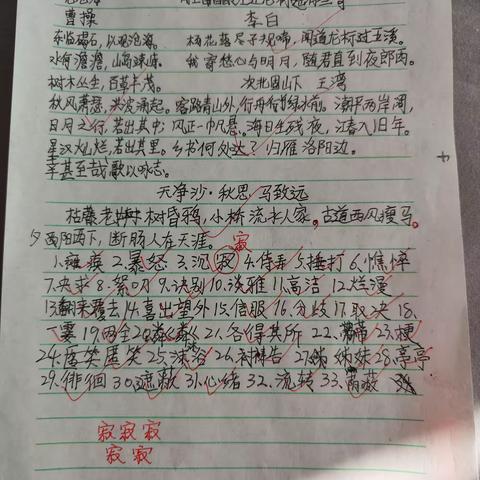 曹操 李白
东临碣石，以观沧海。 杨花落尽子规啼，闻道龙标过五溪。
水何澹澹，山岛竦峙。 我寄愁心与明月，随君直到夜郎西。
树木丛生，百草丰茂。 次北固山下 王湾
秋风萧瑟，洪波涌起。客路青山外，行舟绿水前。潮平两岸阔，
日月之行，若出其中。风正一帆悬。海日生残夜，江春入旧年。
星汉灿烂，若出其里。乡书何处达？归雁洛阳边。
幸甚至哉，歌以咏志。
天净沙·秋思 马致远
枯藤老树昏鸦，小桥流水人家。古道西风瘦马。
夕阳西下，断肠人在天涯。 寂
1.瘫痪 2.暴怒 3.沉寂 4.侍弄 5.捶打 6.憔悴
7.央求 8.絮叨 9.诀别 10.淡雅 11.高洁 12.烂漫
13.翻来覆去 14.喜出望外 15.信服 16.分歧 17.取决 18.
一霎 19.两全 20. 21.各得其所 22. 23.梗
24.匿笑 25.沐浴 26.祷告 27.姊妹 28.亭亭
29.徘徊 30.遮蔽 31.心绪 32.流转 33.
寂寂寂
寂寂